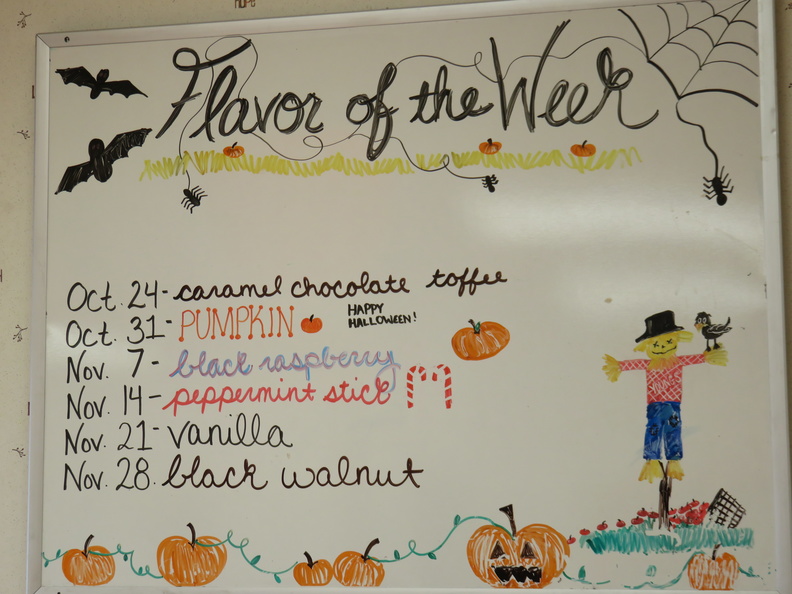 Flavor of the Week
Oct. 24 - caramel chocolate toffee
Oct. 31 - PUMPKIN
HAPPY
HALLOWEEN!
Nov. 7 - black raspberry
Nov. 14 - peppermint stick
Nov. 21 - vanilla
Nov. 28. black walnut